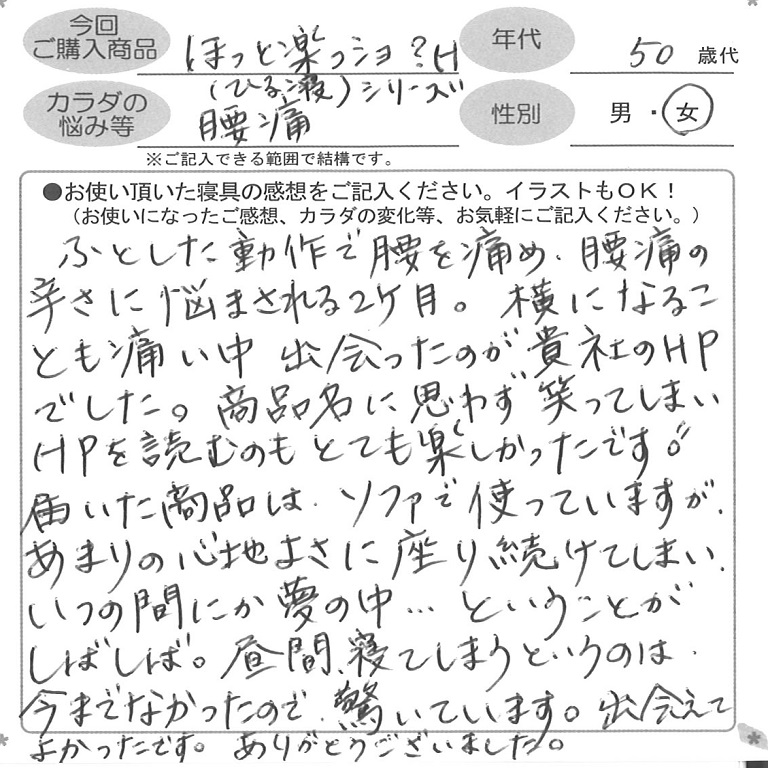 今回
ご購入商品
ほっと楽っショ?H
(ひる寝)シリーズ
年代
50 歳代
カラダの
悩み等
腰痛
性別
男・女
※ご記入できる範囲で結構です。
●お使い頂いた寝具の感想をご記入ください。イラストもOK!
(お使いになったご感想、カラダの変化等、お気軽にご記入ください。)
ふとした動作で腰を痛め、腰痛の
辛さに悩まされる2ケ月。横になるこ
とも痛い中 出会ったのが貴社のHP
でした。商品名に思わず笑ってしまい
HPを読むのもとても楽しかったです。
届いた商品は、ソファで使っていますが、
あまりの心地よさに座り続けてしまい、
いつの間にか夢の中…ということが
しばしば。昼間、寝てしまうというのは、
今までなかったので、驚いています。出会えて
よかったです。ありがとうございました。